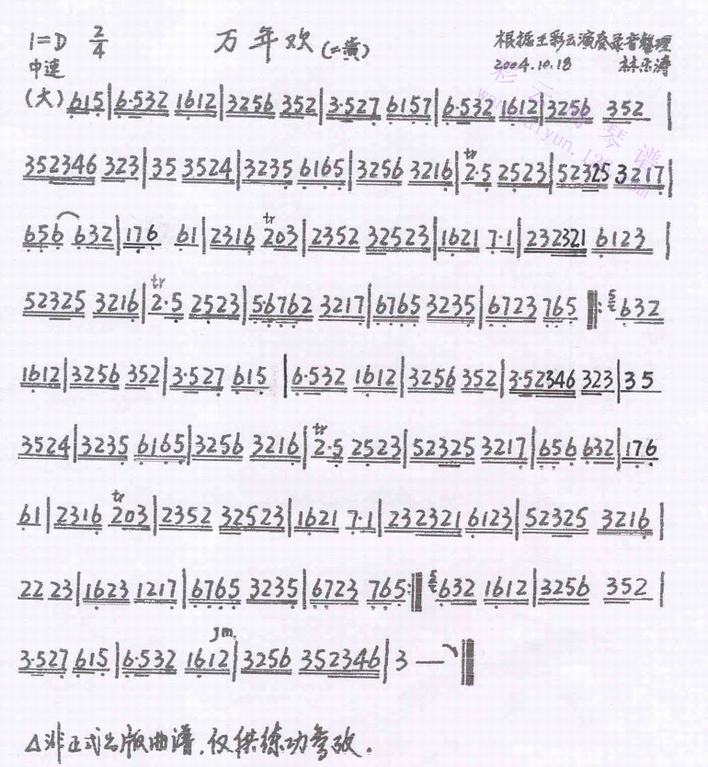 1=D 2/4 万年欢 (二黄) 根据王彩云演奏录音整理
中速 2004.10.18
(大) 615|6·532 1612|3256 352|3·527 6157|6·532 1612|3256 352|
352346 323|35 3524|3235 6165|3256 3216|tr 2·5 2523|52325 3217|
656 632|176 61|2316 tr 203|2352 32523|1621 7·1|232321 6123|
52325 3216|tr 2·5 2523|56762 3217|6765 3235|6723 765 ‖: 5 632
1612|3256 352|3·527 615|6·532 1612|3256 352|3·52346 323|35
3524|3235 6165|3256 3216|tr 2·5 2523|52325 3217|656 632|176
61|2316 tr 203|2352 32523|1621 7·1|232321 6123|52325 3216|
22 23|1623 1217|6765 3235|6723 765 :‖ 5 632 1612|3256 352|
3·527 615|6·532 1612|3256 352346|3 —‖
△非正式出版曲谱,仅供练功参考.